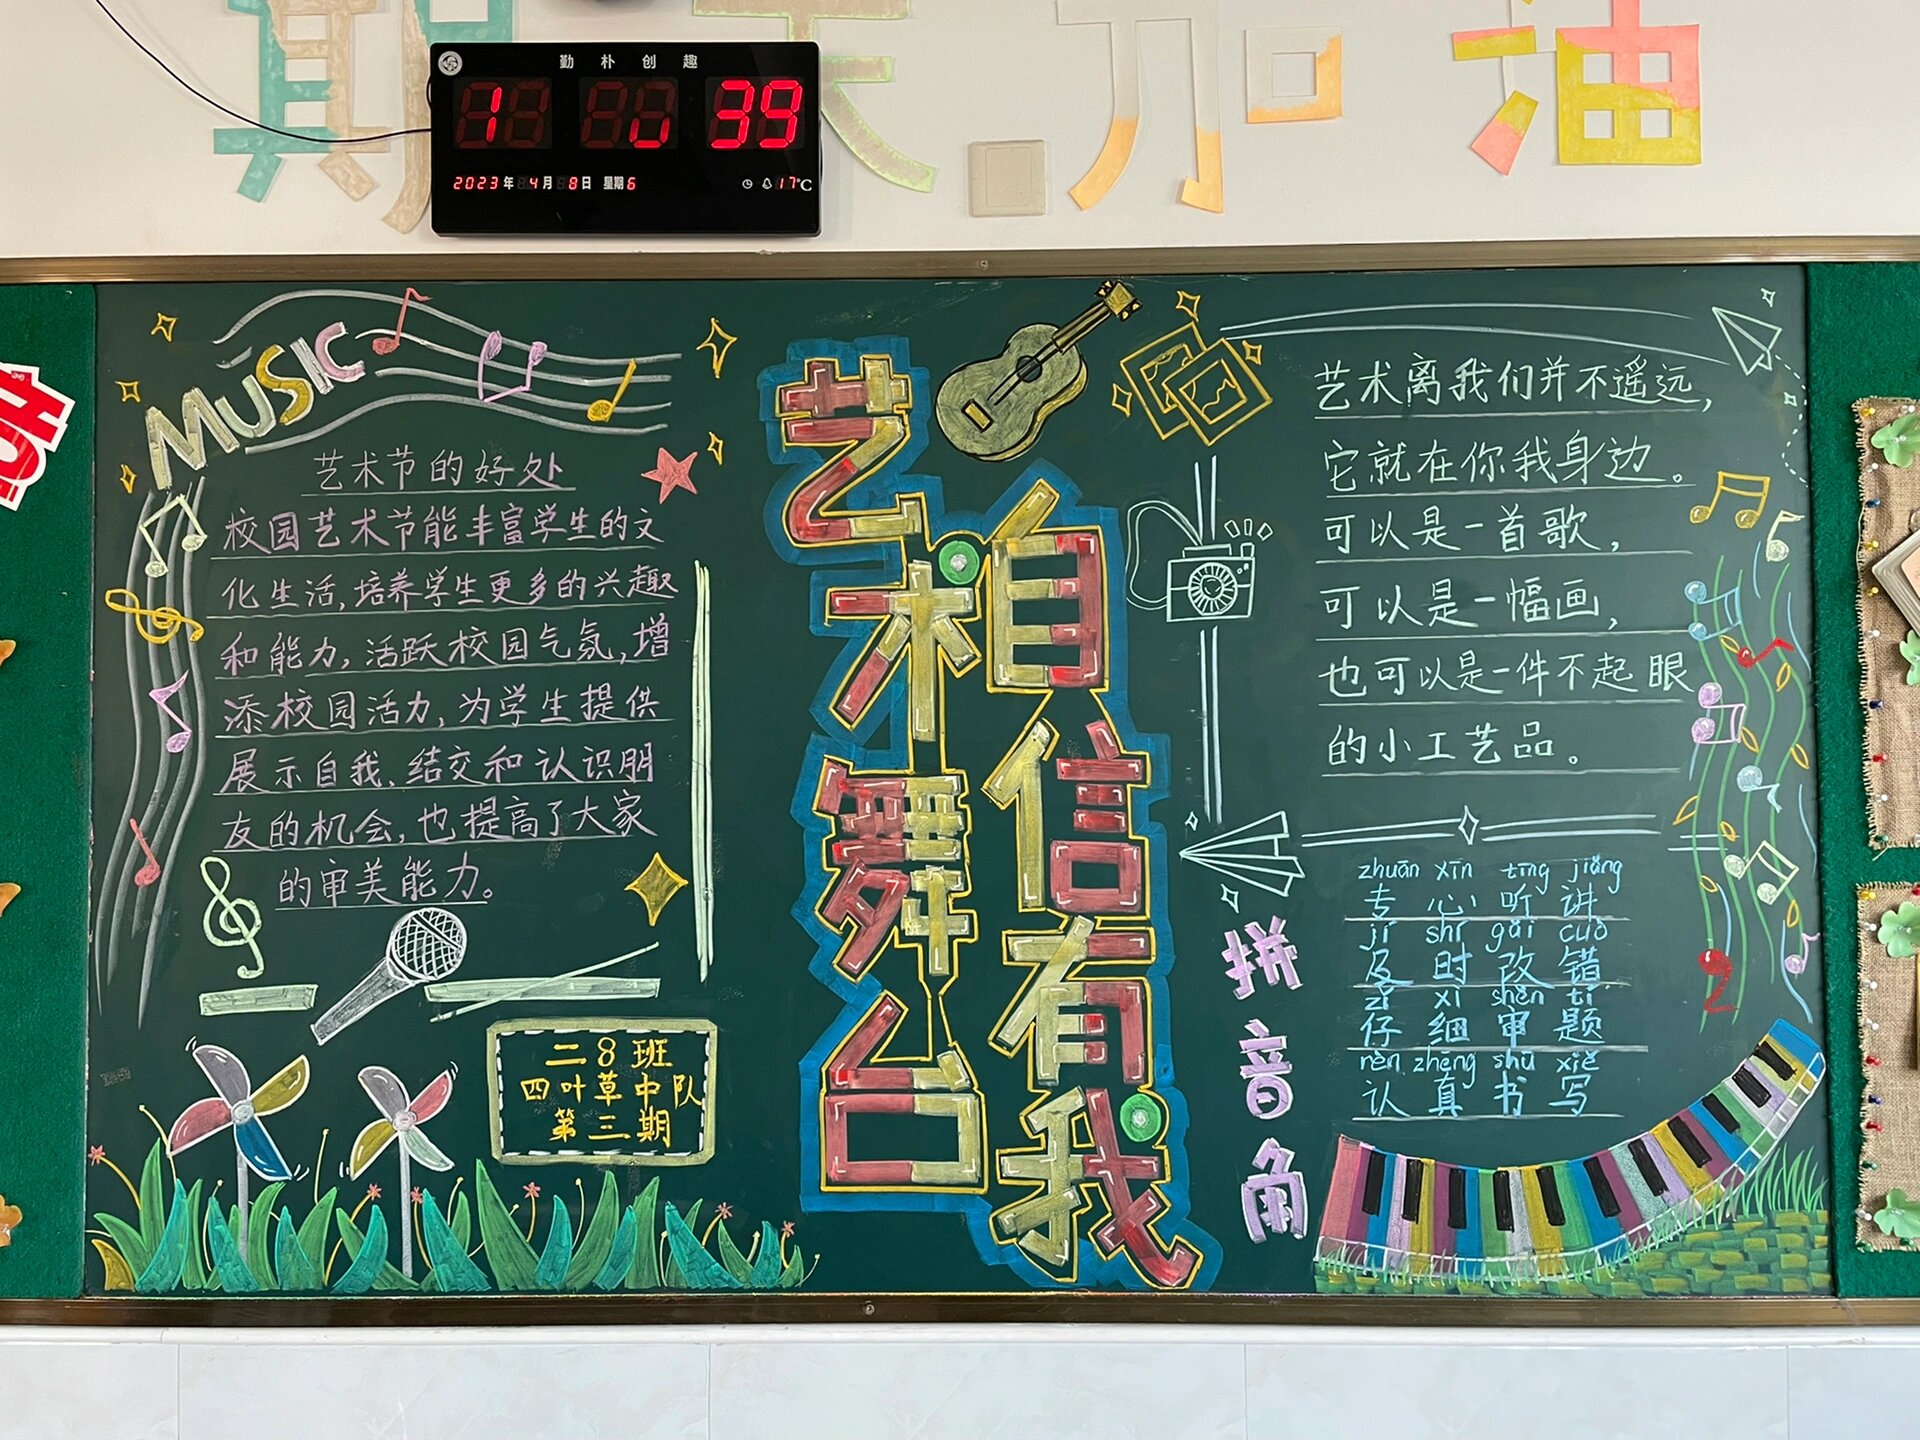 期天加油
勤朴创趣
1 39
2023年4月8日 星期6 17℃
MUSIC
艺术节的好处
校园艺术节能丰富学生的文
化生活,培养学生更多的兴趣
和能力,活跃校园气氛,增
添校园活力,为学生提供
展示自我,结交和认识朋
友的机会,也提高了大家
的审美能力。
二8班
四叶草中队
第三期
艺术舞台
自信有我
艺术离我们并不遥远,
它就在你我身边。
可以是一首歌,
可以是一幅画,
也可以是一件不起眼
的小工艺品。
拼音角
zhuān xīn tīng jiǎng
专心听讲
jí shí gǎi cuò
及时改错
zǐ xì shěn tí
仔细审题
rèn zhēng shū xiě
认真书写